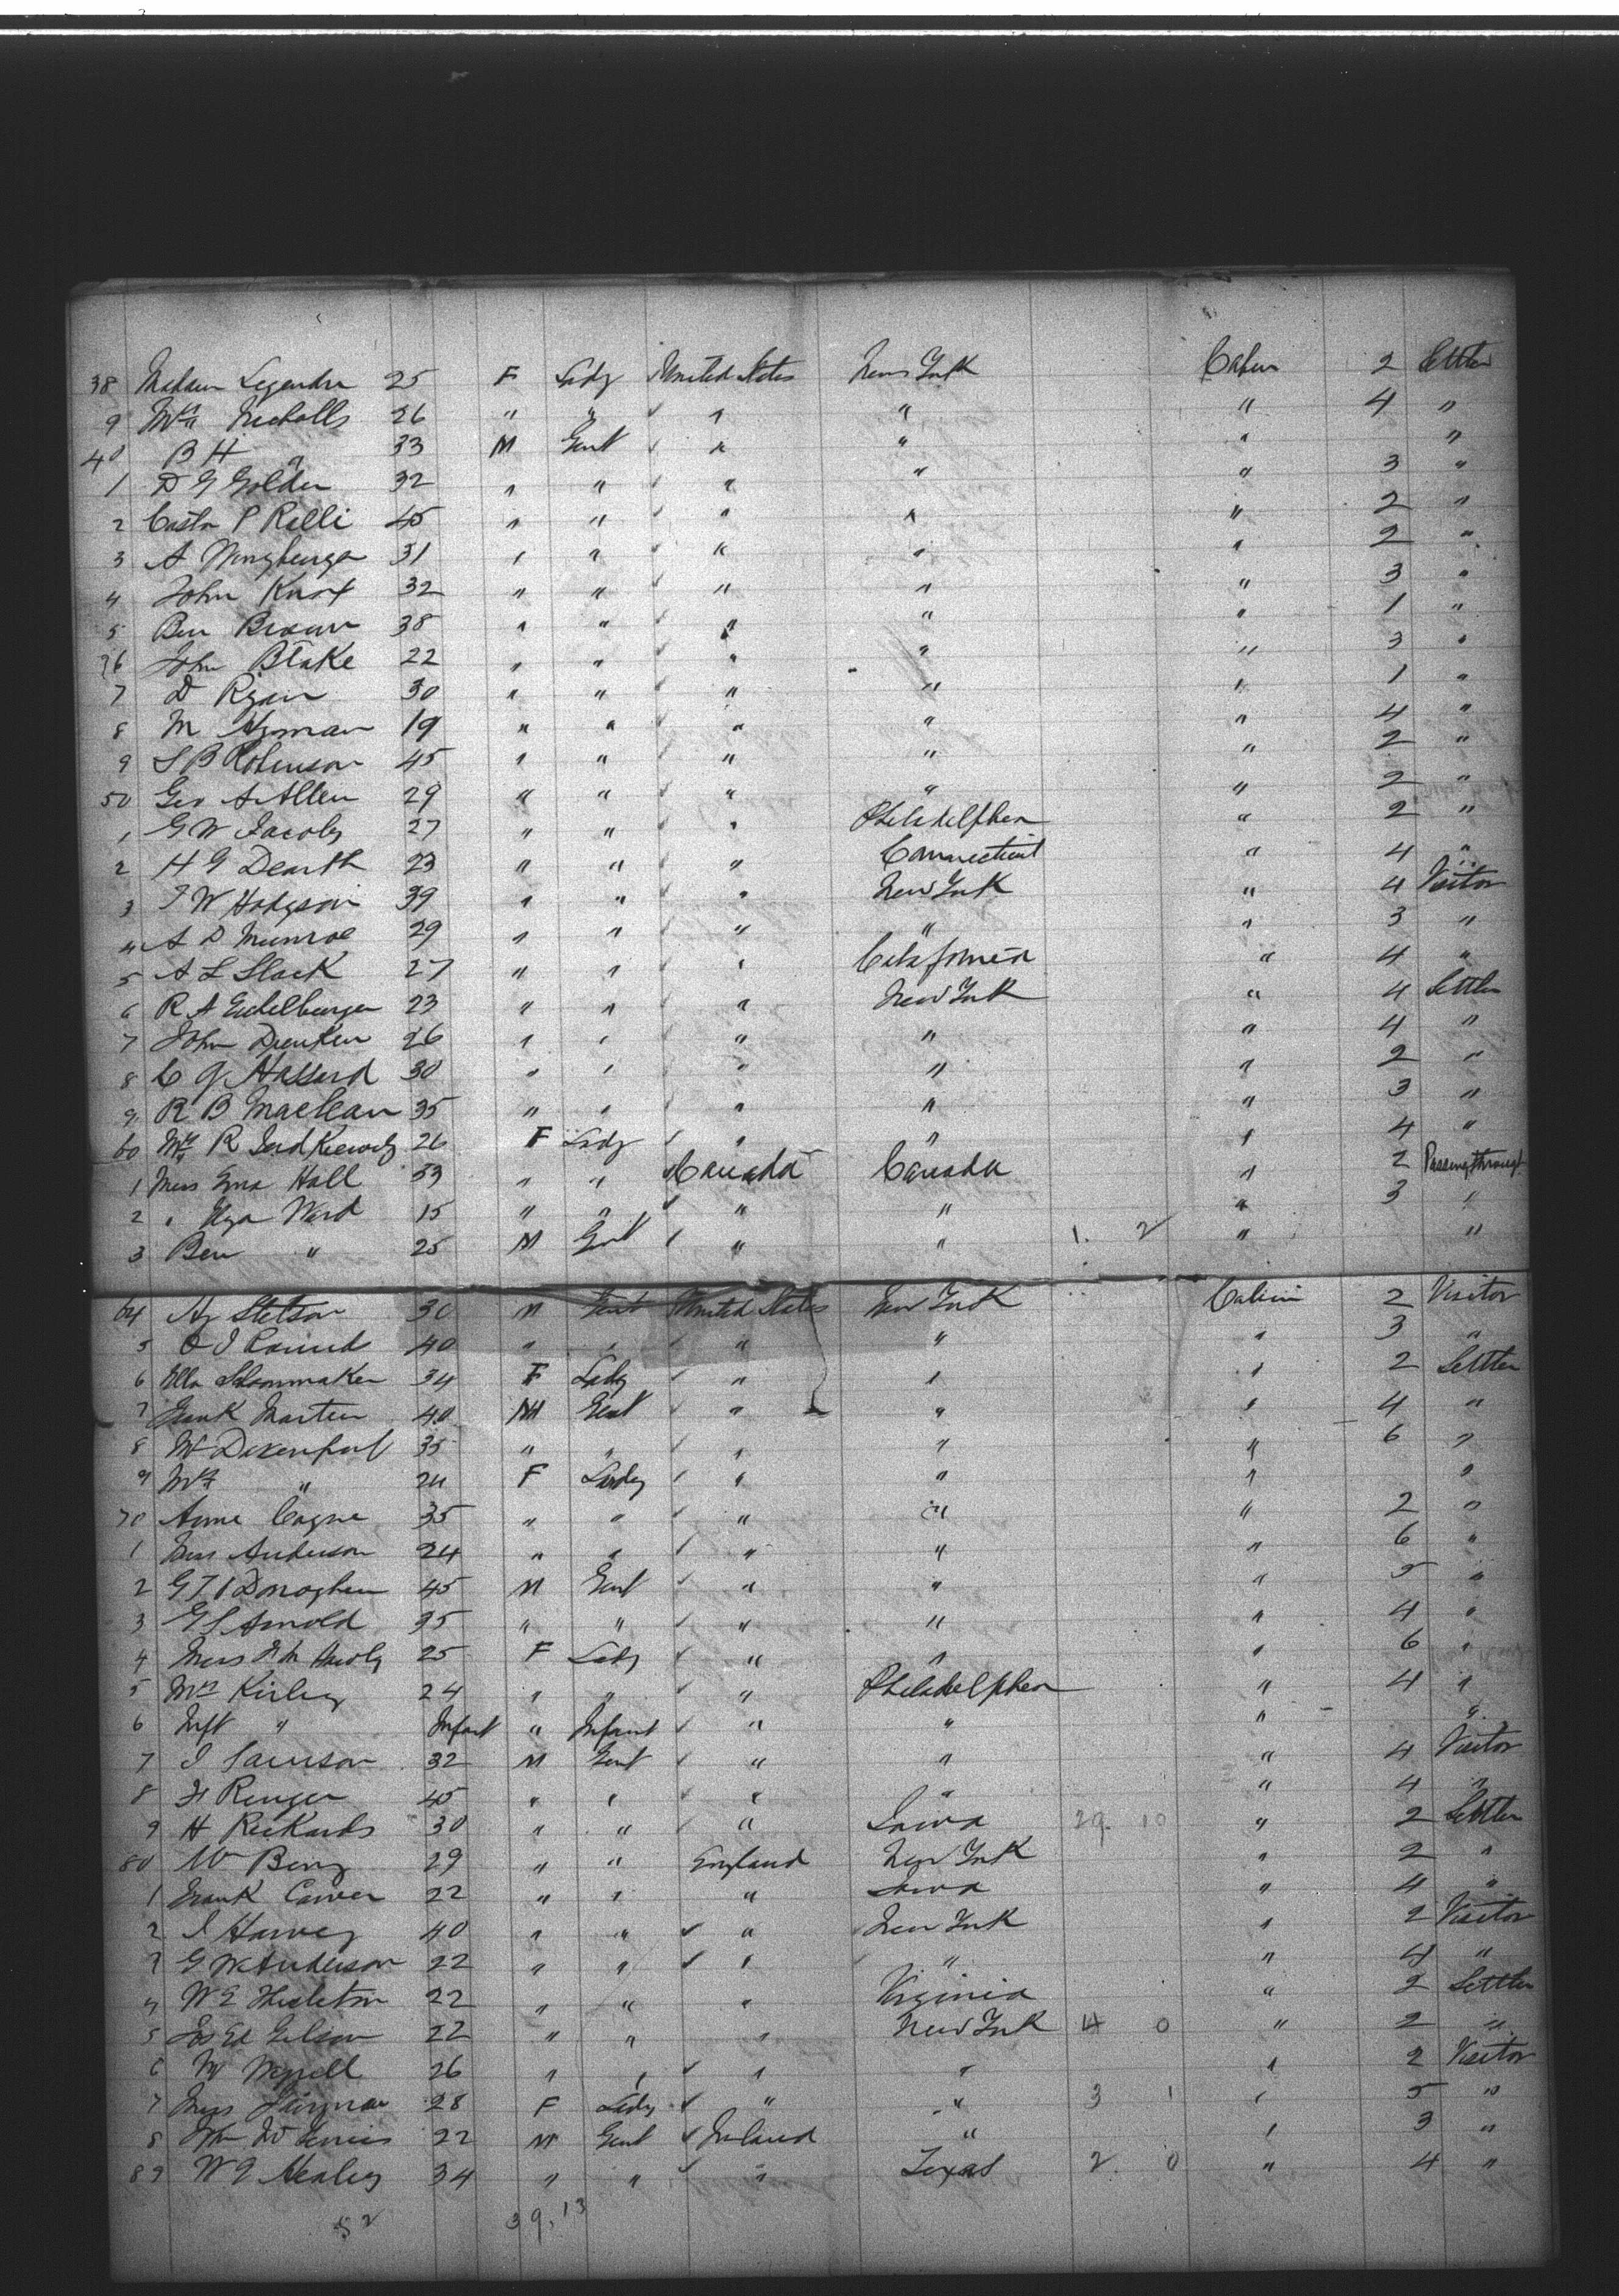 38 Madam Legendre 25 F Lady United States New York Cabin 2 Settler
9 Mrs Nicholls 26 " " " " " 4 "
40 B H " 33 M Gent " " " "
1 D G Golden 32 " " " " " 3 "
2 Casta P Ralli 45 " " " " " 2 "
3 A 31 " " " " " 2 "
4 John Knox 32 " " " " " 3 "
5 Ben Brown 38 " " " " " 1 "
46 John Blake 22 " " " " " 3 "
7 D Ryan 30 " " " " " 1 "
8 M Hyman 19 " " " " " 4 "
9 S B Robinson 45 " " " " " 2 "
50 Geo A Allen 29 " " " " " 2 "
1 G W Jacoby 27 " " " Philadelphia " 2 "
2 H G Dearth 23 " " " Connecticut " 4 "
3 J W Hodgson 39 " " " New York " 4 Visitor
4 A D Munroe 29 " " " " " 3 "
5 A L Slack 27 " " " California " 4 "
6 R A Eichelberger 23 " " " New York " 4 Settler
7 John 26 " " " " " 4 "
8 C G Hassard 30 " " " " " 2 "
9 R B Maclean 35 " " " " " 3 "
60 Mrs R 26 F Lady " " " 4 "
1 Miss Ema Hall 33 " " Canada Canada " 2 Passing through
2 " Ward 15 " " " " " 3 "
3 Ben " 25 M Gent " " 1. 2 " "
64 Hy Stetson 30 M Gent United States New York Cabin 2 Visitor
5 40 " " " " " 3 "
6 Ella Schoonmaker 34 F Lady " " " 2 Settler
7 Frank Martin 40 M Gent " " " 4 "
8 W Davenport 35 " " " " " 6 "
9 Mrs " 24 F Lady " " " "
70 Annie Cogne 35 " " " " " 2 "
1 Miss Anderson 24 " " " " " 6 "
2 G T O'Donoghue 45 M Gent " " " 5 "
3 G S Arnold 35 " " " " " 4 "
4 Miss 25 F Lady " " " 6 "
5 Mrs Kirley 24 " " " Philadelphia " 4 "
6 Inft " Infant " Infant " " " "
7 J 32 M Gent " " " 4 Visitor
8 Renger 45 " " " " " 4 "
9 H Rickards 30 " " " Iowa 29. 10 " 2 Settler
80 Wm Berry 29 " " England New York " 2 "
1 Frank Carver 22 " " " Iowa " 4 "
2 J Harvey 40 " " " New York " 2 Visitor
3 G W Anderson 22 " " " " " 4 "
4 W E 22 " " " Virginia " 2 Settler
5 Gilson 22 " " " New York 4 0 " 2 "
6 W 26 " " " " " 2 Visitor
7 Miss 28 F Lady " " 3 1 " 5 "
8 22 M Gent Ireland " " 3 "
89 W J Healey 34 " " " Texas 2. 0 " 4 "
52 39. 13